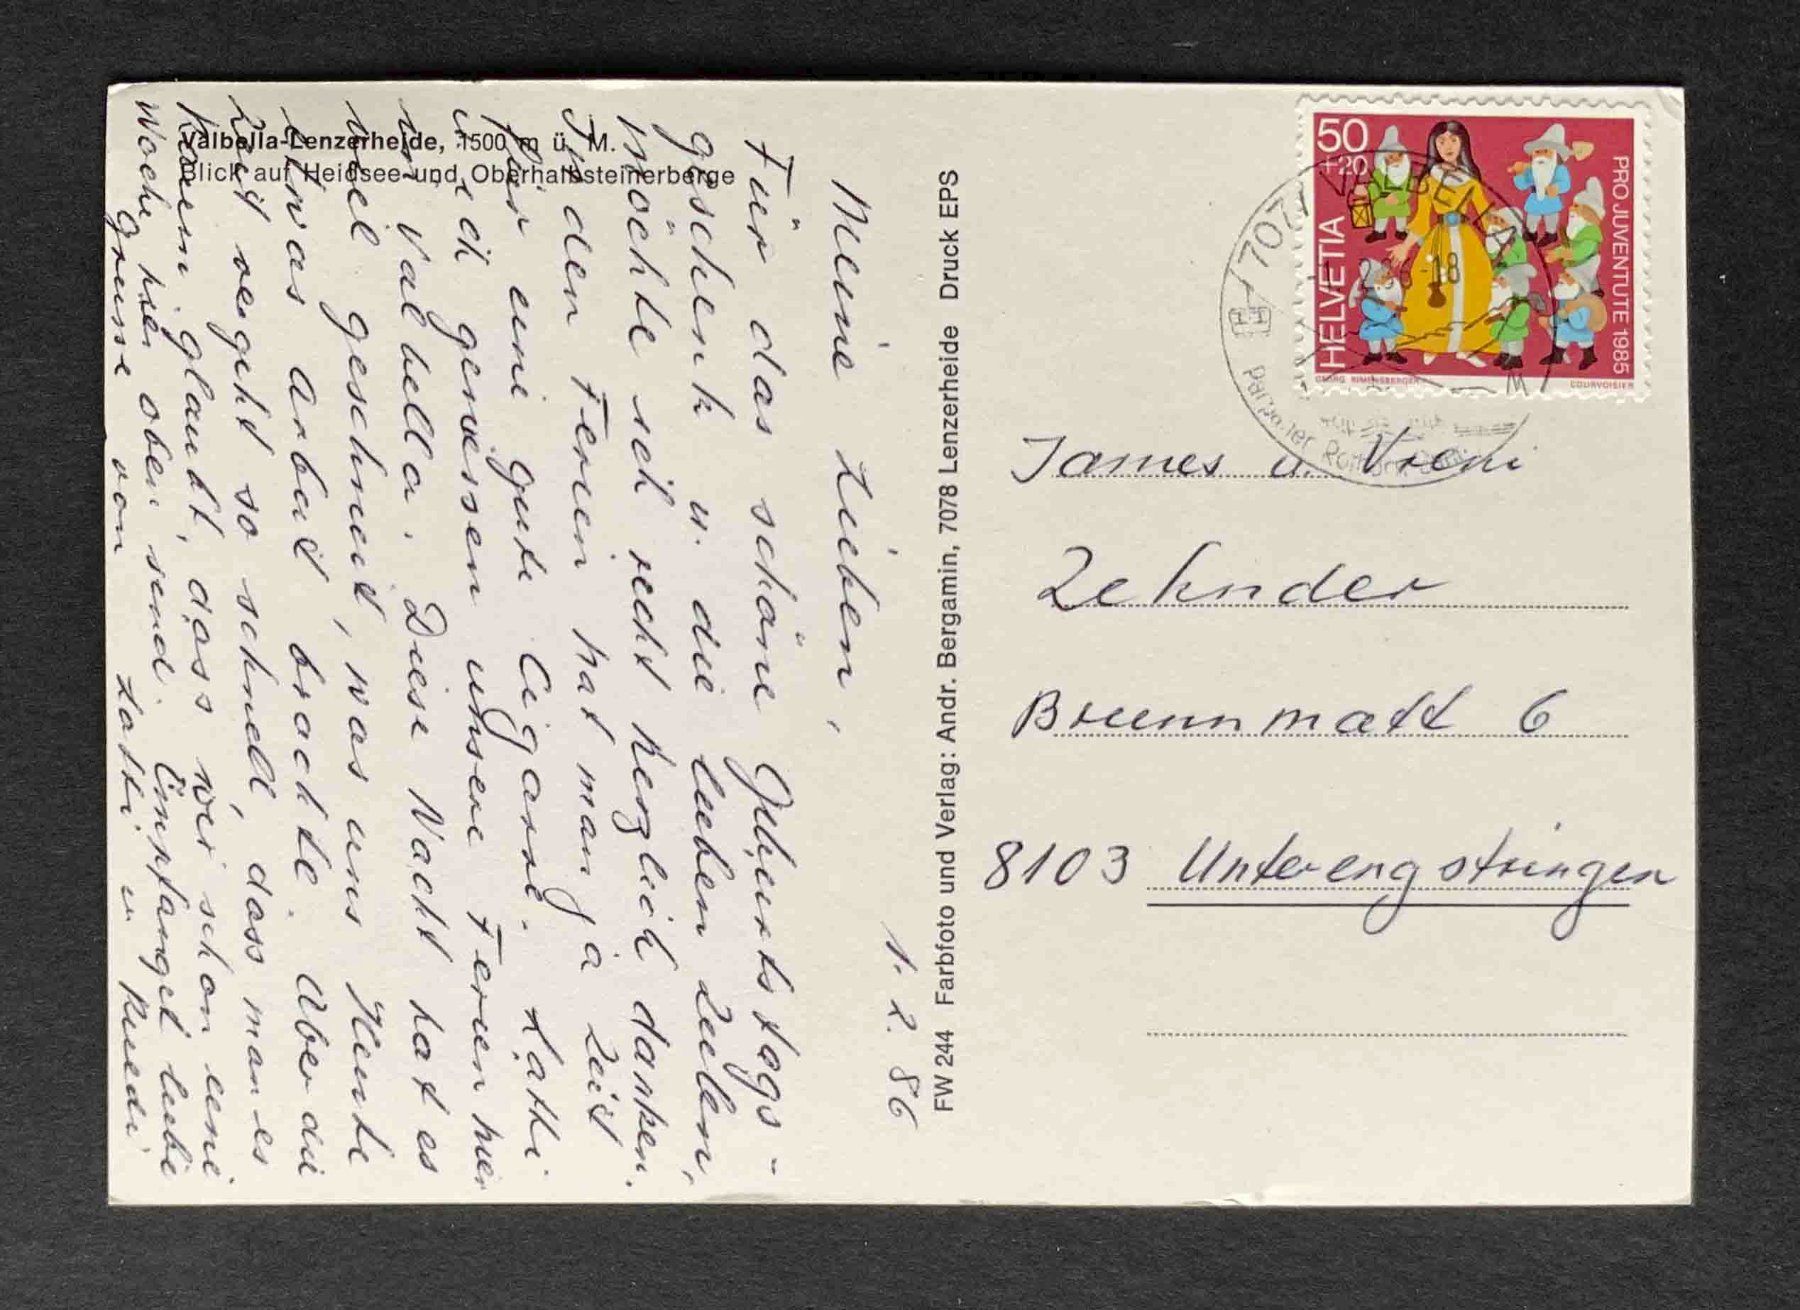 Valbella-Lenzerheide, 1500 m ü. M.
Blick auf Heidsee und Oberhalbsteinerberge
1. 2. 86
Meine Lieben,
Für das schöne Geburtstags-
geschenk u. die lieben Zeilen,
möchte ich recht herzlich danken.
In den Ferien hat man ja Zeit
für eine gute Cigarre. Kathi
u. ich geniessen unsere Ferien hier
in Valbella. Diese Nacht hat es
viel geschneit, was uns Heute
etwas Arbeit brachte. Aber die
Zeit vergeht so schnell, dass man es
kaum glaubt, dass wir schon eine
Woche hier oben sind. Empfanget liebe
Grüsse von Kathi u Ruedi
FW 244 Farbfoto und Verlag: Andr. Bergamin, 7078 Lenzerheide Druck EPS
50
+20
HELVETIA
PRO JUVENTUTE 1985
GEORG RIMENSBERGER
COURVOISIER
7077 VALBELLA
-18
James u. Vreni
Zehnder
Brunnmatt 6
8103 Unterengstringen